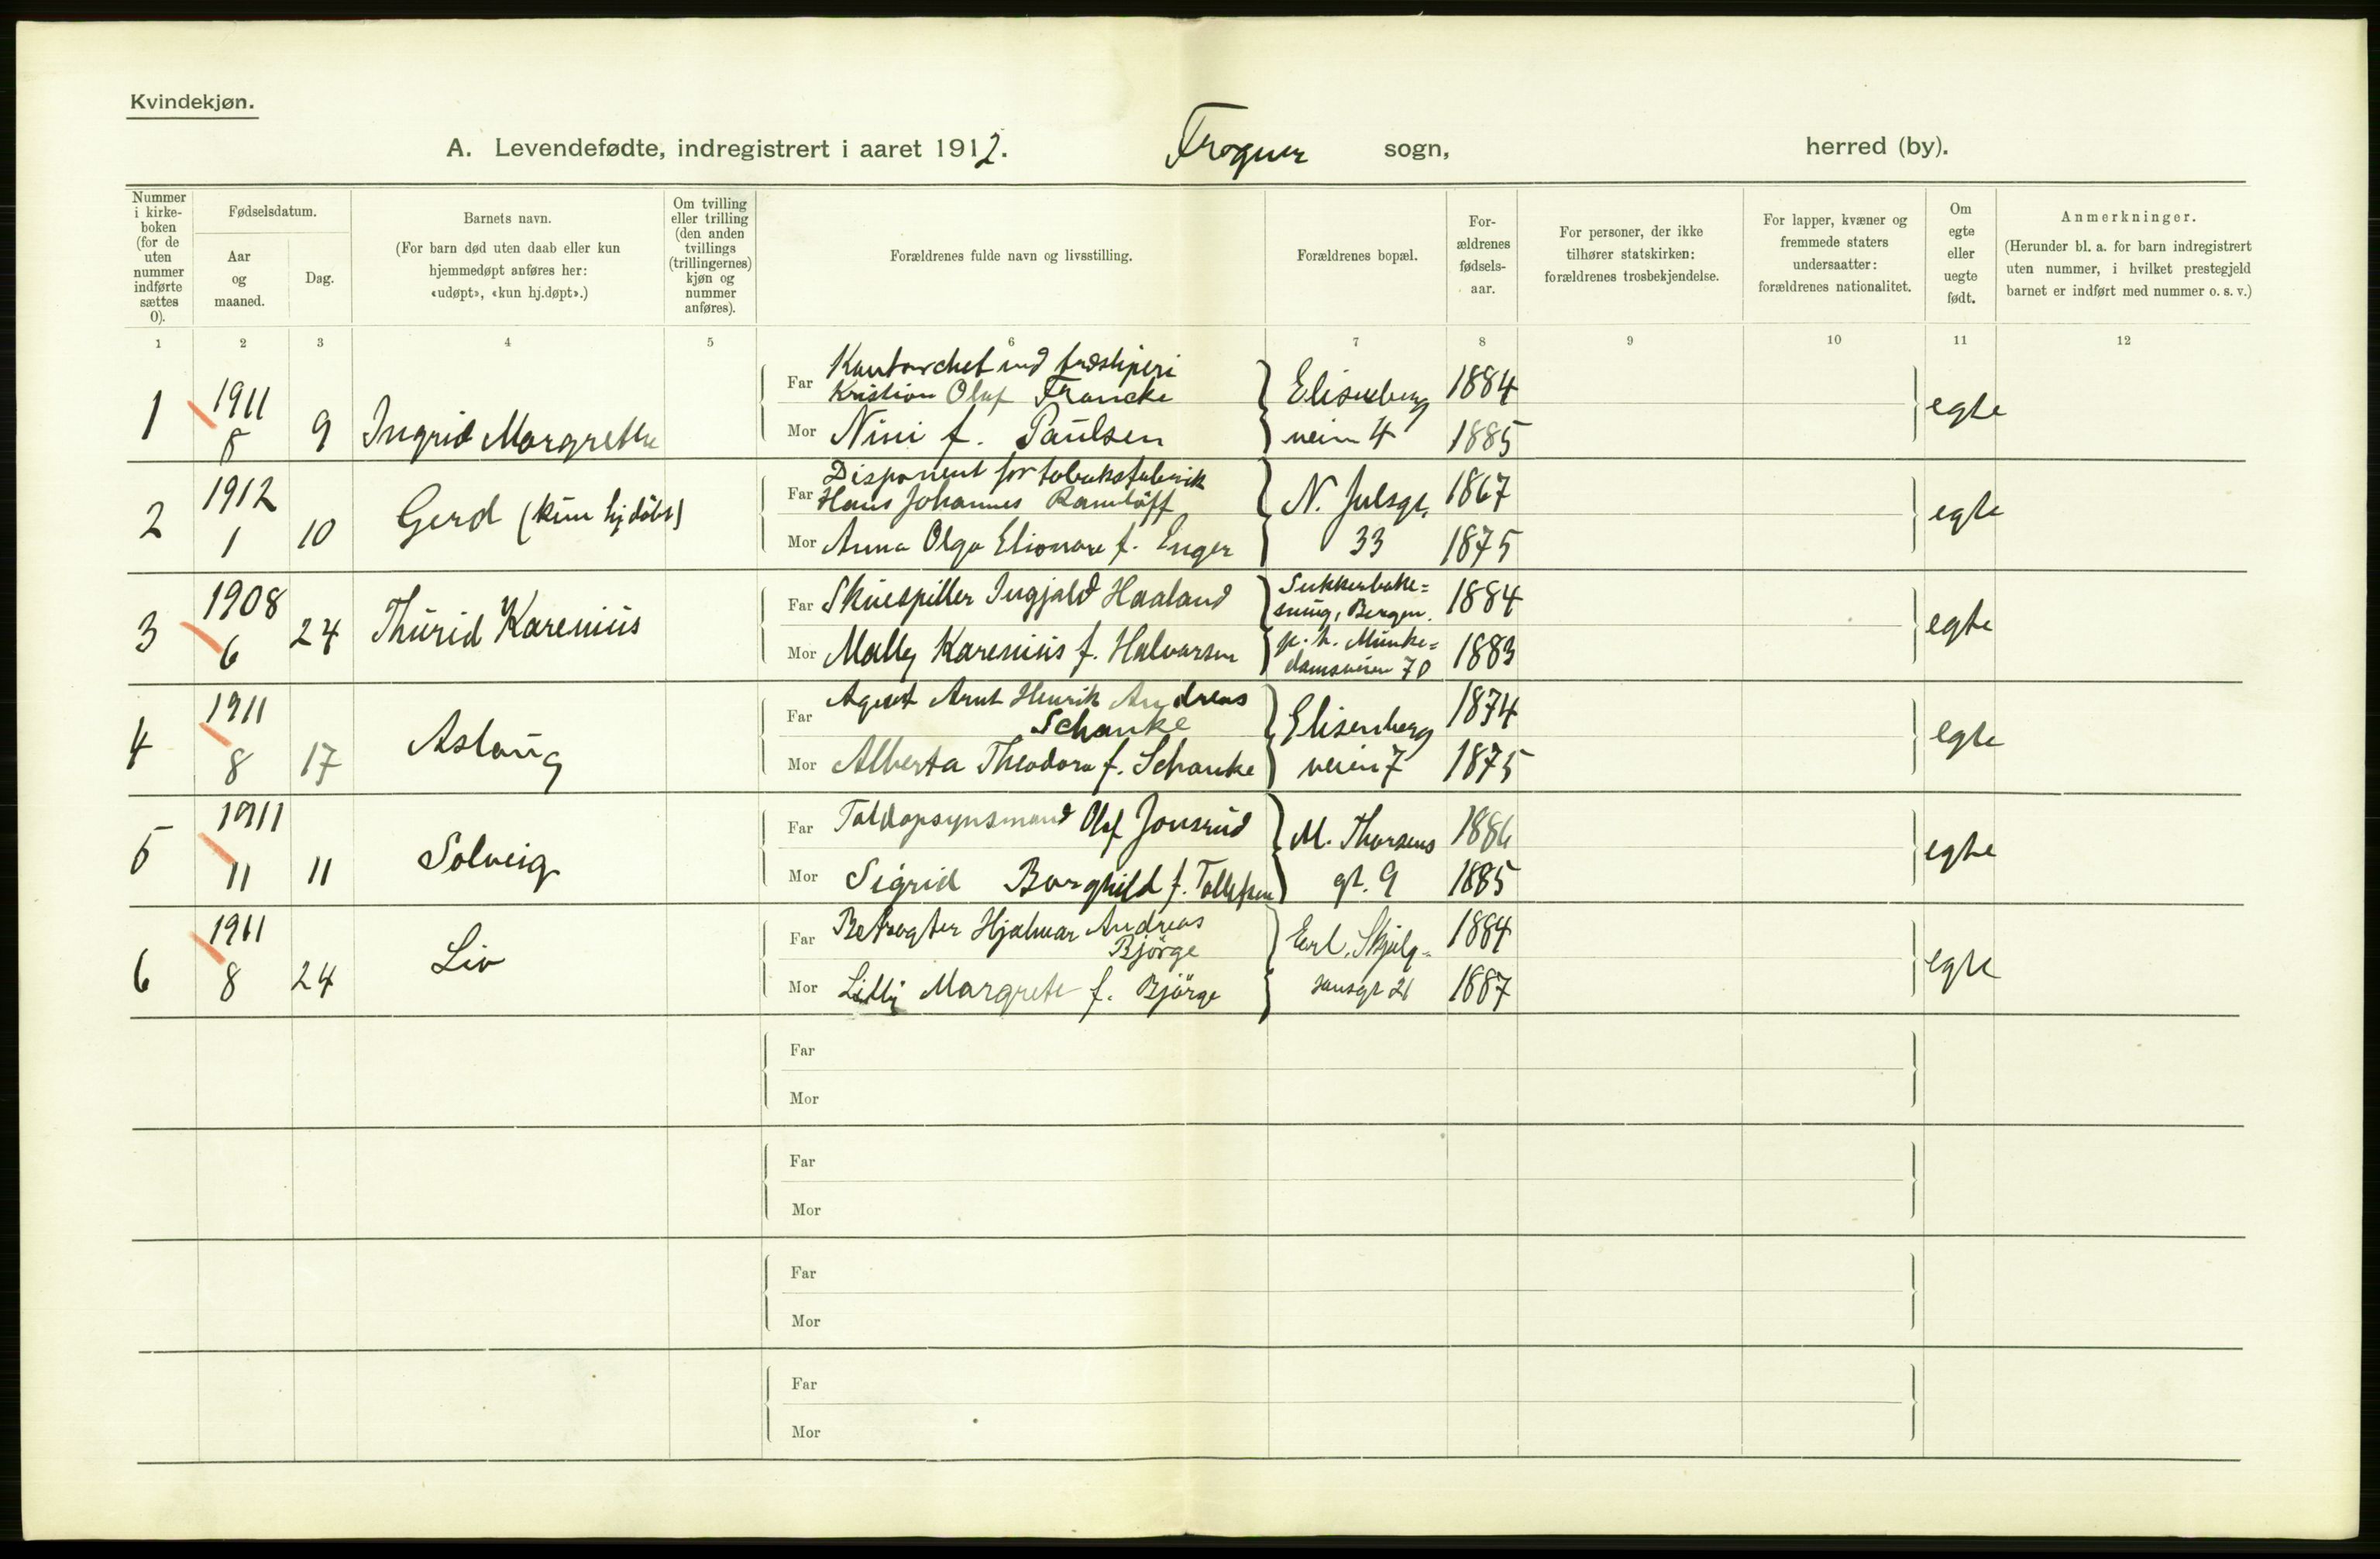 Kvindekjøn.
A. Levendefødte, indregistrert i aaret 1912. Frogner sogn, herred (by).
Nummer i kirke-boken (for de uten nummer indførte sættes 0).
Fødselsdatum.
Aar og maaned.
Dag.
Barnets navn.
(For barn død uten daab eller kun hjemmedøpt anføres her: «udøpt», «kun hj.døpt».)
Om tvilling eller trilling (den anden tvillings (trillingernes) kjøn og nummer anføres).
Forældrenes fulde navn og livsstilling.
Forældrenes bopæl.
For-ældrenes fødsels-aar.
For personer, der ikke tilhører statskirken: forældrenes trosbekjendelse.
For lapper, kvæner og fremmede staters undersaatter: forældrenes nationalitet.
Om egte eller uegte født.
Anmerkninger.
(Herunder bl. a. for barn indregistrert uten nummer, i hvilket prestegjeld barnet er indført med nummer o. s. v.)
1 2 3 4 5 6 7 8 9 10 11 12
1 1911 8 9 Ingrid Margrethe
Far Kontorchef ved træsliperi
Kristian Olaf Francke Elisenberg 1884 egte
Mor Nini f. Paulsen veien 4 1885
2 1912 1 10 Gerd (kun hjdöbt)
Far Disponent for tobaksfabrik
Hans Johannes N. Julsgt. 1867 egte
Mor Anna Olga Elionore f. Enger 33 1875
3 1908 6 24 Thurid Karenius
Far Skuespiller Ingjald Haaland Sukkerhuse= 1884 egte
Bergen.
Mor Mally Karenius f. Halvorsen p. t. Munke= 1883
damsveien 70
4 1911 8 17 Aslaug
Far Agent Arnt Henrik Andreas
Schanke Elisenberg 1874 egte
Mor Alberta Theodora f. Schanke veien 7 1875
5 1911 11 11 Solveig
Far Toldopsynsmand Olaf Jonsrud M. Thorsens 1886 egte
Mor Sigrid Borghild f. Tollefsen gt. 9 1885
6 1911 8 24 Liv
Far Betragter Hjalmar Andreas
Björge Erl. Skjalg- 1884 egte
Mor Lilly Margrete f. Björge sonsgt 21 1887
Far
Mor
Far
Mor
Far
Mor
Far
Mor